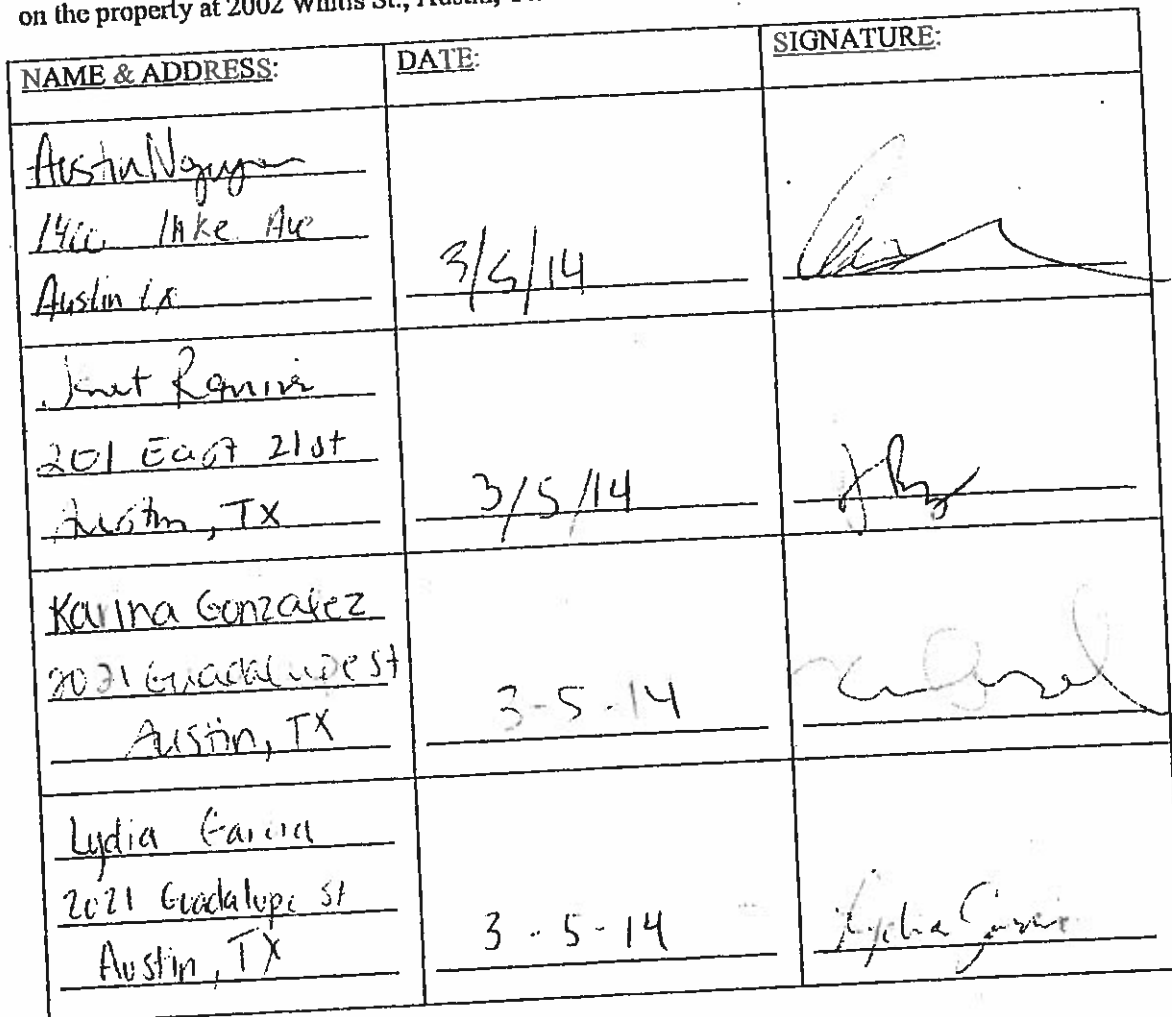 on the property at 2002 Whitis St., Austin,
NAME & ADDRESS:
DATE:
SIGNATURE:
Austin Nguyen
Lake Ave
Austin Tx
3/5/14
Janet
201 East 21st
Austin, TX
3/5/14
Karina Gonzalez
2021 Guadalupe st
Austin, TX
3-5-14
Lydia Garcia
2021 Guadalupe St
Austin, TX
3-5-14
Lydia Garcia